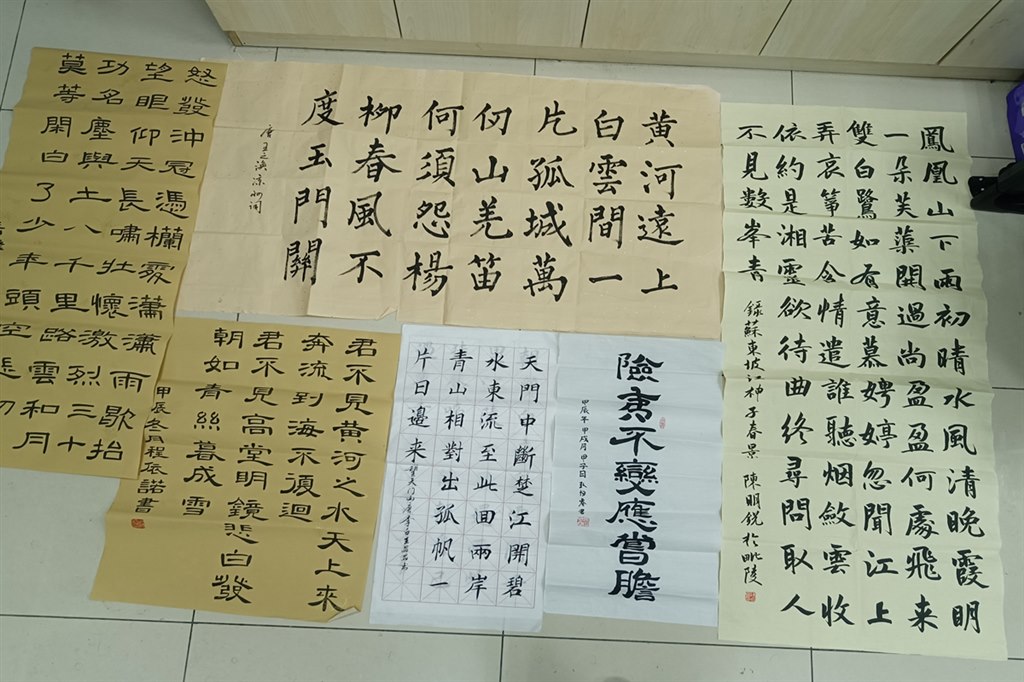 怒發沖冠憑欄處瀟瀟雨歇抬
望眼仰天長嘯壯懷激烈三十
功名塵與土八千里路雲和月
莫等閑白了少年頭空悲切
黃河遠上
白雲間一
片孤城萬
仞山羌笛
何須怨楊
柳春風不
度玉門關
唐王之渙涼州詞
鳳凰山下雨初晴水風清晚霞明
一朵芙蕖開過尚盈盈何處飛来
雙白鷺如有意慕娉婷忽聞江上
弄哀箏苦含情遣誰聽烟斂雲收
依約是湘靈欲待曲終尋問取人
不見数峯青
錄蘇東坡江神子春景 陳明銳於毗陵
君不見黃河之水天上来
奔流到海不復迴
君不見高堂明鏡悲白發
朝如青絲暮成雪
甲辰冬月程依諾書
天門中斷楚江開碧
水東流至此回兩岸
青山相對出孤帆一
片日邊来 望天門山唐李白
險夷不變應嘗膽
甲辰年甲戌月甲子日